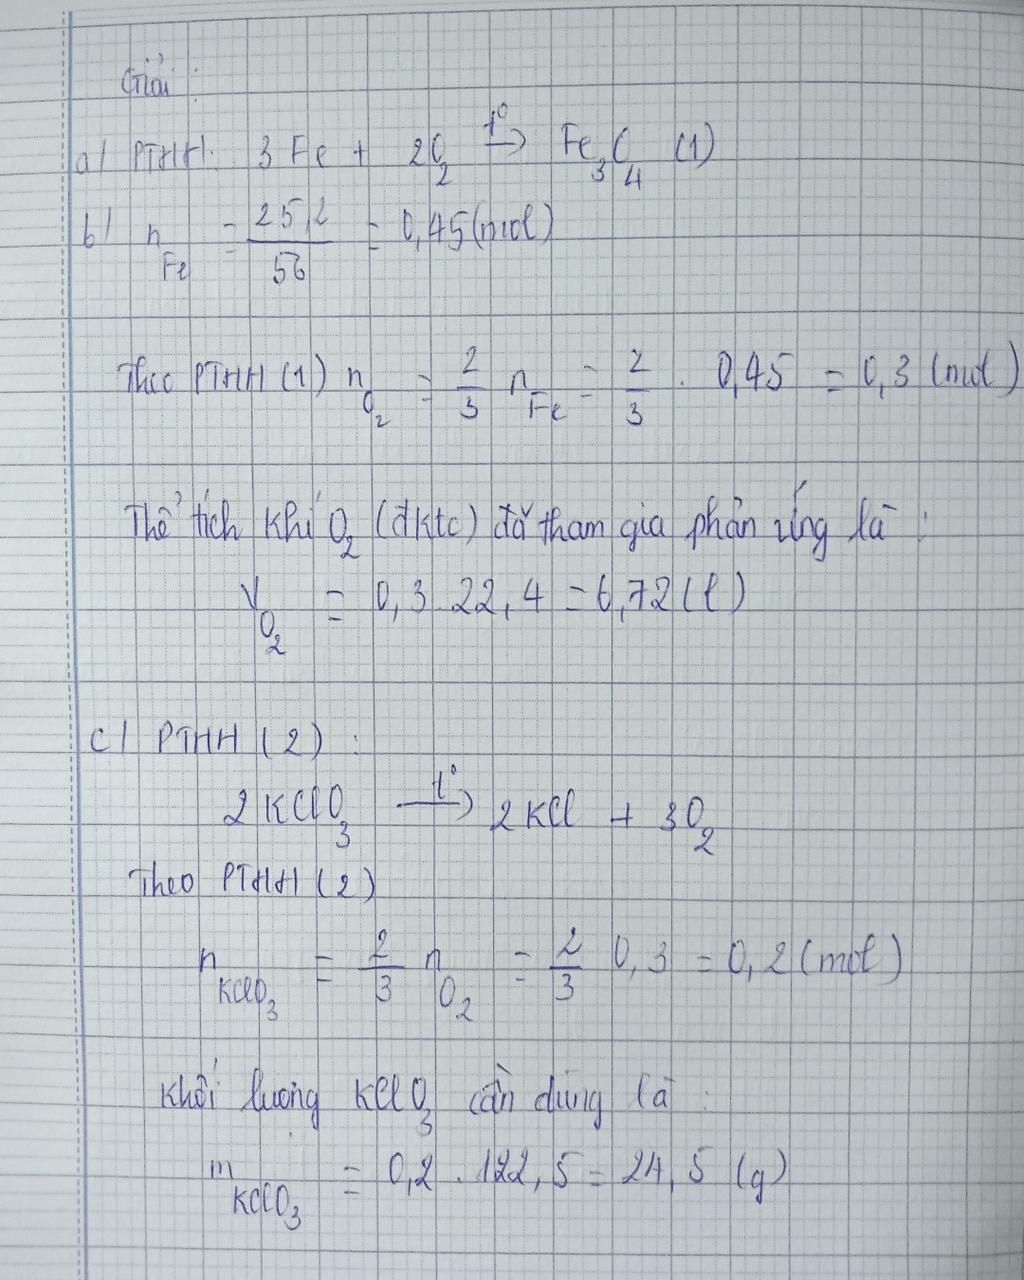 Giải:
a/ PTHH: 3Fe + 2O₂ t°→ Fe₃O₄ (1)
b/ n_Fe = 25,2/56 = 0,45 (mol)
Theo PTHH (1) n_O₂ = 2/3 n_Fe = 2/3 . 0,45 = 0,3 (mol)
Thể tích khí O₂ (đktc) đã tham gia phản ứng là:
V_O₂ = 0,3 . 22,4 = 6,72 (l)
c/ PTHH (2):
2KClO₃ t°→ 2KCl + 3O₂
Theo PTHH (2)
n_KClO₃ = 2/3 n_O₂ = 2/3 0,3 = 0,2 (mol)
Khối lượng KClO₃ cần dùng là:
m_KClO₃ = 0,2 . 122,5 = 24,5 (g)